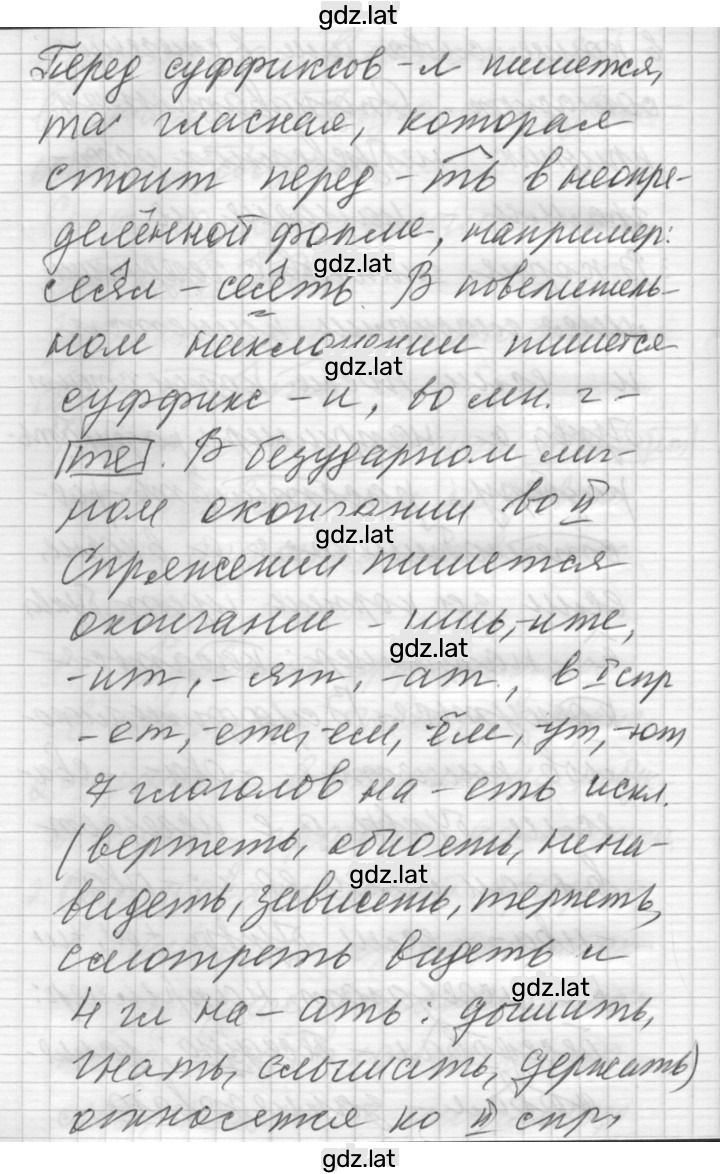 gdz.lat
Перед суффиксов -л пишется,
та гласная, которая
стоит перед -ть в неопре-
делённой форме, например:
gdz.lat
сеял - сеять. В повелитель-
ном наклонении пишется
gdz.lat
суффикс -и, во мн. г -
те. В безударном лич-
ном окончании во II
gdz.lat
Спряжении пишется
окончание - ишь, -ите,
gdz.lat
-ит, -ят, -ат, в I спр
-ет, -ете, -ем, -ём, -ут, -ют
7 глоголов на -еть искл.
(вертеть, обидеть, нена-
gdz.lat
видеть, зависеть, терпеть,
смотреть видеть и
gdz.lat
4 гл на -ать: дышать,
гнать, слышать, держать)
относятся ко II спр,
gdz.lat